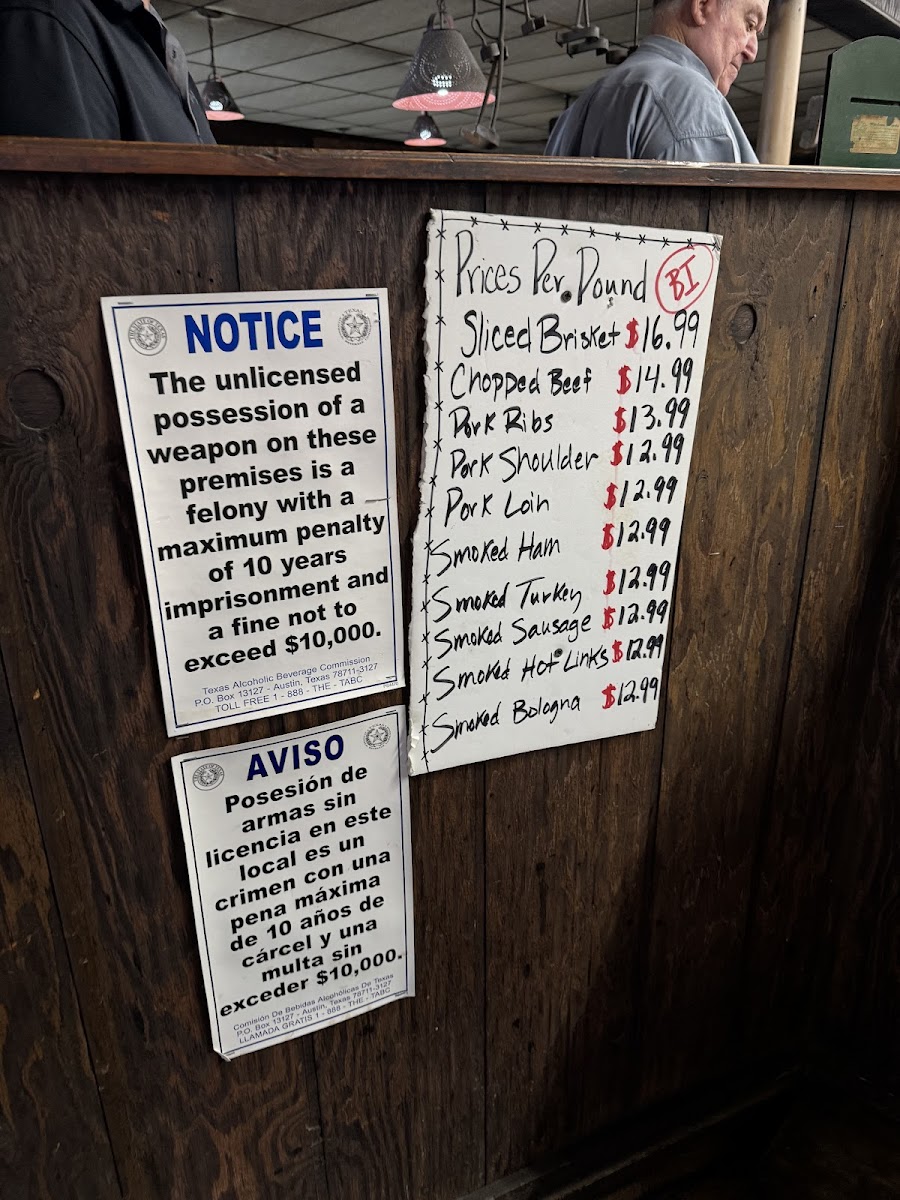 NOTICE
The unlicensed
possession of a
weapon on these
premises is a
felony with a
maximum penalty
of 10 years
imprisonment and
a fine not to
exceed $10,000.
Texas Alcoholic Beverage Commission
P.O. Box 13127 - Austin, Texas 78711-3127
TOLL FREE 1 - 888 - THE - TABC
AVISO
Posesión de
armas sin
licencia en este
local es un
crimen con una
pena máxima
de 10 años de
cárcel y una
multa sin
exceder $10,000.
Comisión De Bebidas Alcohólicas De Texas
P.O. Box 13127 - Austin, Texas 78711-3127
LLAMADA GRATIS 1 - 888 - THE - TABC
Prices Per Pound BI
Sliced Brisket $16.99
Chopped Beef $14.99
Pork Ribs $13.99
Pork Shoulder $12.99
Pork Loin $12.99
Smoked Ham $12.99
Smoked Turkey $12.99
Smoked Sausage $12.99
Smoked Hot Links $12.99
Smoked Bologna $12.99